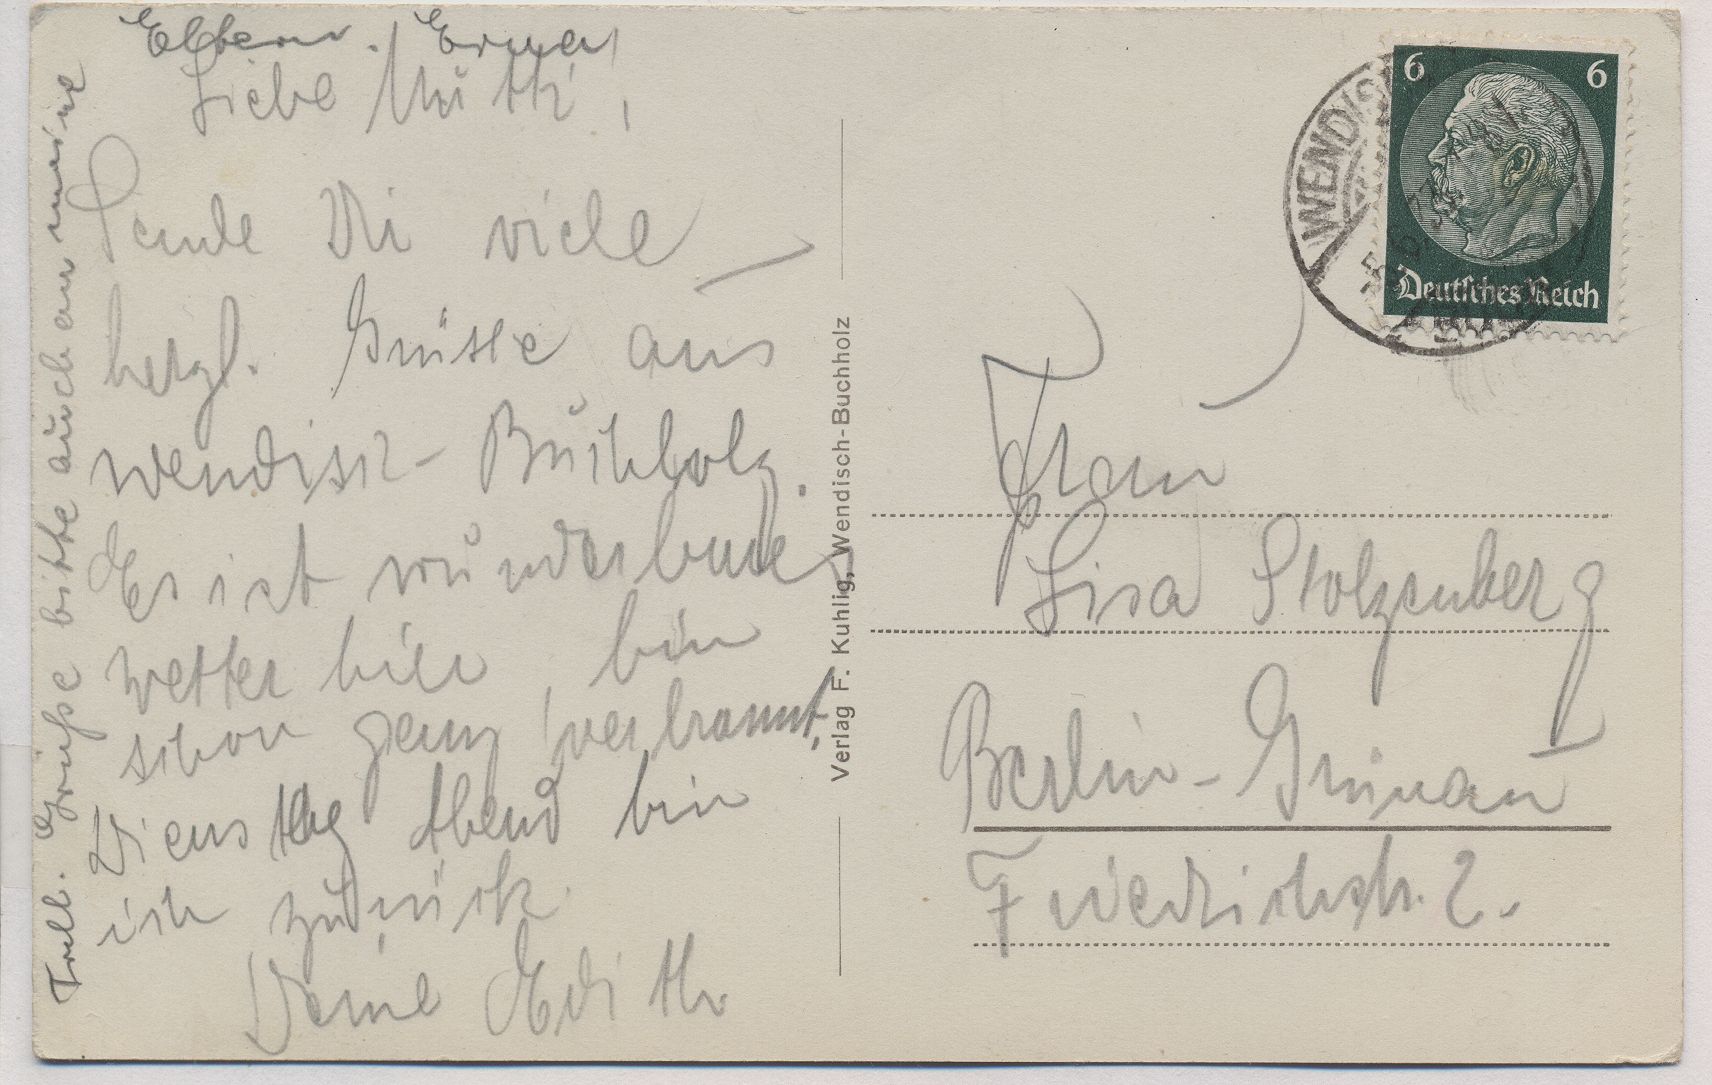 Liebe Mutti,
Sende Dir viele
herzl. Grüsse aus
Wendisch-Buchholz.
Es ist wunderbares
Wetter hier, bin
schon ganz verbrannt,
Dienstag Abend bin
ich zurück.
Deine Edith
Grüße bitte auch an meine
Eltern. Erna
Verlag F. Kuhlig, Wendisch-Buchholz
6 6
Deutsches Reich
WENDISCH
Frau
Lisa Stolzenberg
Berlin-Grünau
Friedrichstr. 2.